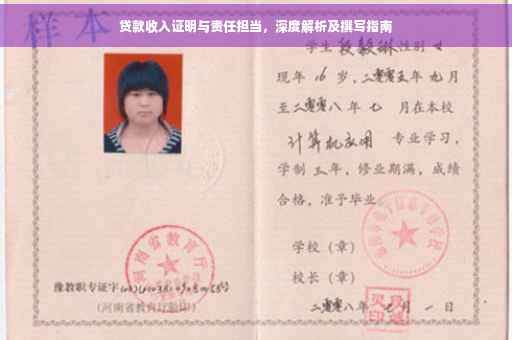 贷款收入证明与责任担当，深度解析及撰写指南
样本
学生 段毅琳 性别 女
现年 16 岁，二零零五年 九月
至二零零八年 七 月在本校
计算机应用 专业学习，
学制 三年，修业期满，成绩
合格，准予毕业
学校（章）
校长（章）
二零零八年 七月 一日
河南省教育厅
豫教职专证字
（河南省教育厅验印）